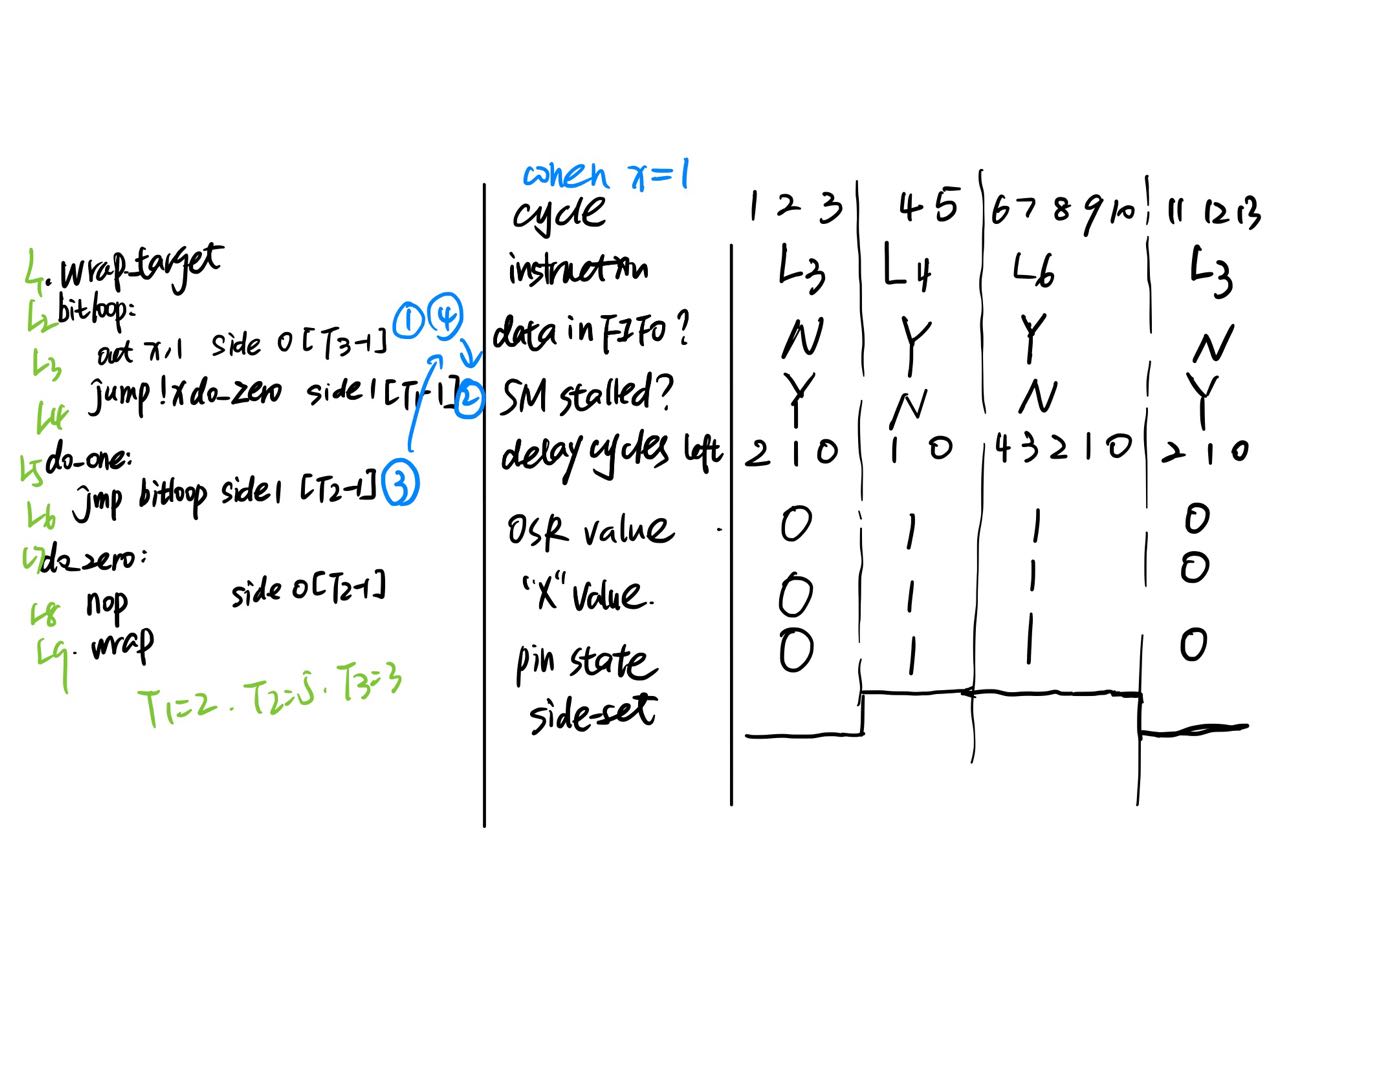 L1. wrap_target
L2 bitloop:
L3 out x,1 side 0 [T3-1] ① ④
L4 jump !x do_zero side 1 [T1-1] ②
L5 do-one:
L6 jmp bitloop side 1 [T2-1] ③
L7 do_zero:
L8 nop side 0 [T2-1]
L9. wrap
T1=2. T2=5. T3=3
when x=1
cycle 1 2 3 4 5 6 7 8 9 10 11 12 13
instruction L3 L4 L6 L3
data in FIFO? N Y Y N
SM stalled? Y N N Y
delay cycles left 2 1 0 1 0 4 3 2 1 0 2 1 0
OSR value 0 1 1 0
"X" value. 0 1 1 0
pin state 0 1 1 0
side-set